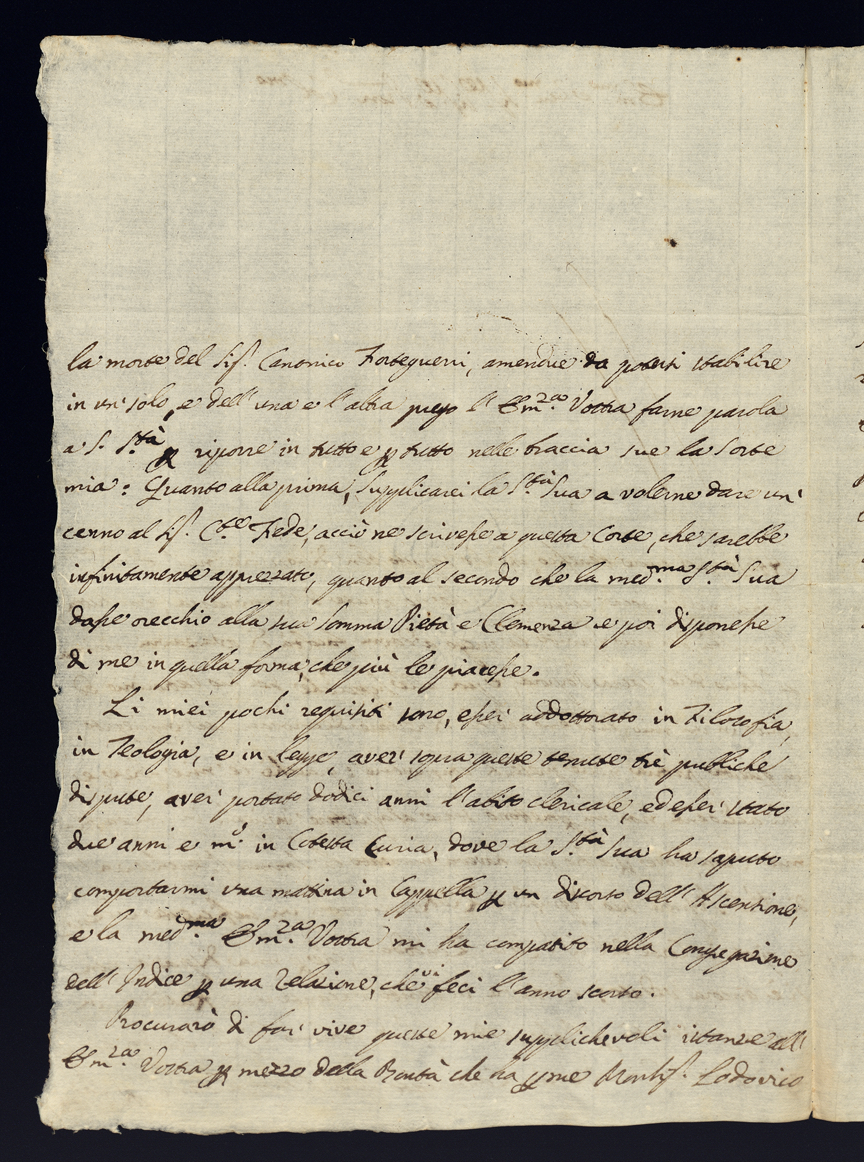 la morte del Sig.r Canonico Forteguerri, amendue da potersi stabilire
in un' solo, e dell' una e l'altra prego l' Em.za Vostra farne parola
a S. S.tà p riporre in tutto e p tutto nelle braccia sue la sorte
mia: Quanto alla prima, supplicarei la S.tà Sua a volerne dare un'
cenno al Sig.r C.te Fede, acciò ne scrivesse a questa Corte, che sarebbe
infinitamente apprezzato, quanto al secondo che la med.ma S.tà Sua
dasse orecchio alla sua somma Pietà e Clemenza e poi disponesse
di me in quella forma, che più le piacesse.
Li miei pochi requisiti sono, esser addottorato in Filosofia,
in Teologia, e in legge, aver sopra queste tenute trè pubbliche
dispute, aver portato dodici anni l'abito clericale, ed esser stato
due anni e m.o in Cotesta Curia, dove la S.tà Sua ha saputo
comportarmi una mattina in Cappella p un discorso dell' Ascensione,
e la med.ma Em.za Vostra mi ha compatito nella Congregazione
dell' Indice p una relazione, che vi feci l'anno scorso.
Procurarò di far vive queste mie supplichevoli istanze all'
Em.za Vostra p mezzo della Bontà che ha p me Monsig.r Lodovico